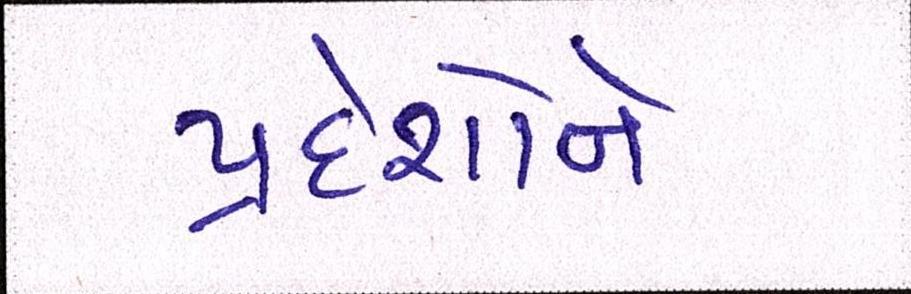 પ્રદેશોને